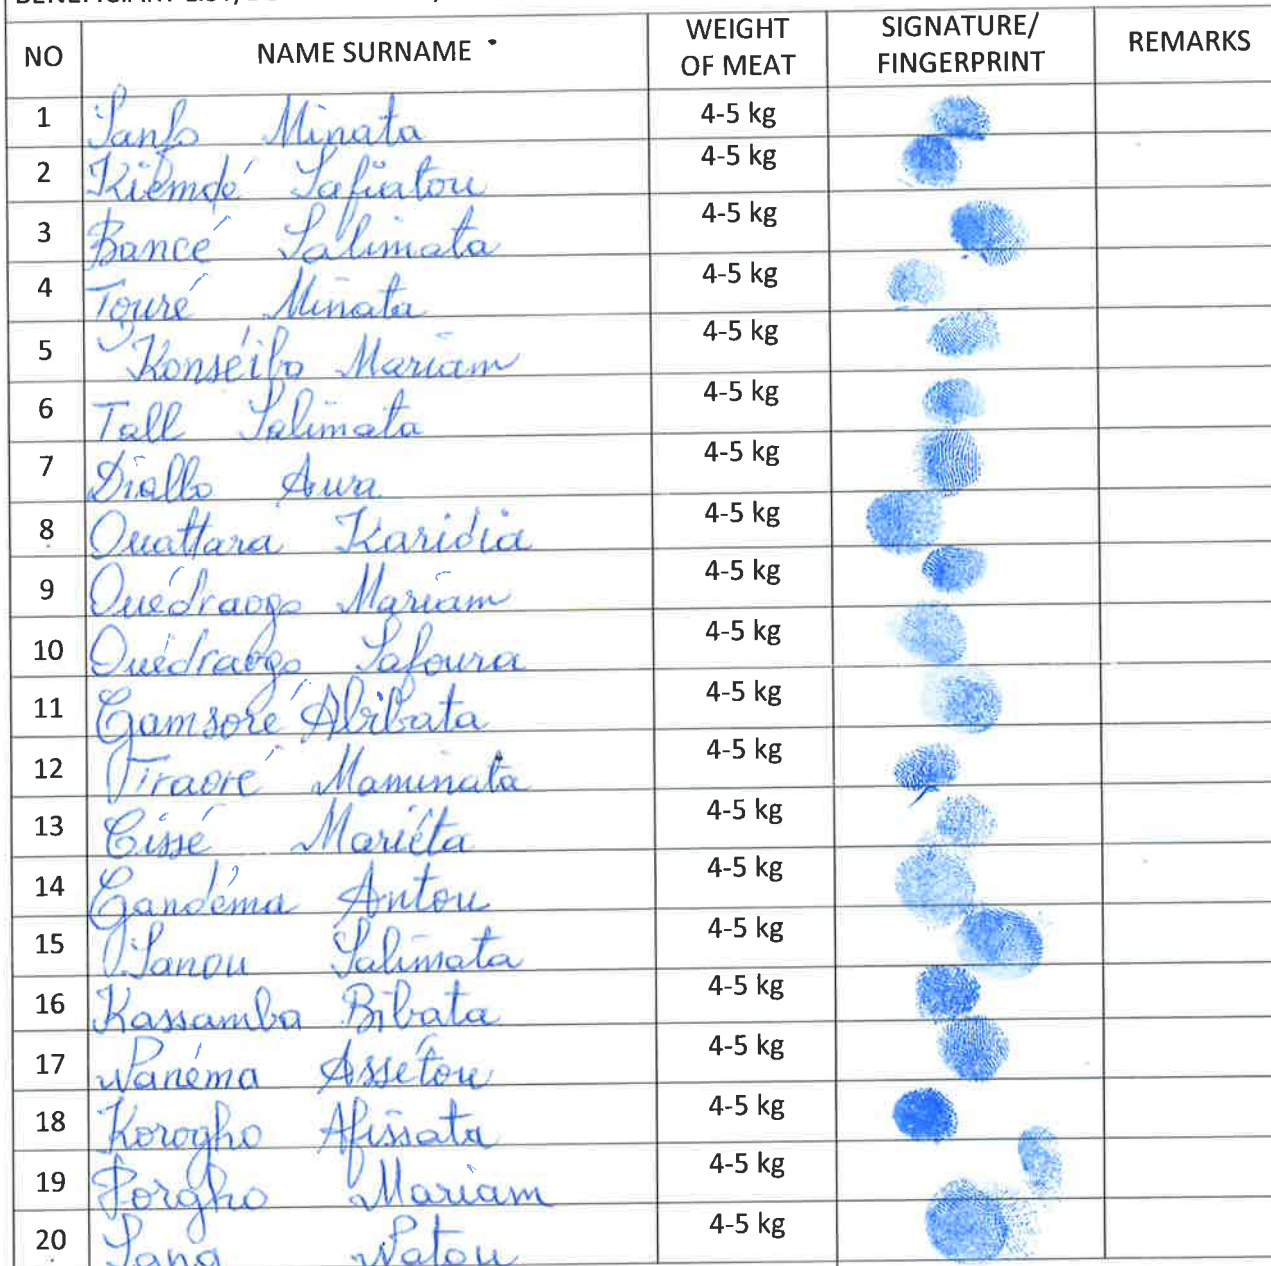 BENEFICIARY LIST/
NO NAME SURNAME WEIGHT OF MEAT SIGNATURE/ FINGERPRINT REMARKS
1 Sanfo Minata 4-5 kg
2 Kiemdé Safiatou 4-5 kg
3 Bancé Salimata 4-5 kg
4 Touré Minata 4-5 kg
5 Konséibo Mariam 4-5 kg
6 Tall Salimata 4-5 kg
7 Diallo Awa 4-5 kg
8 Ouattara Karidia 4-5 kg
9 Ouédraogo Mariam 4-5 kg
10 Ouédraogo Safoura 4-5 kg
11 Gamsoré Abibata 4-5 kg
12 Traoré Maminata 4-5 kg
13 Cissé Mariéta 4-5 kg
14 Gandéma Antou 4-5 kg
15 Sanou Salimata 4-5 kg
16 Kassamba Bibata 4-5 kg
17 Wanéma Assétou 4-5 kg
18 Korogho Afissata 4-5 kg
19 Porgho Mariam 4-5 kg
20 Sana Natou 4-5 kg